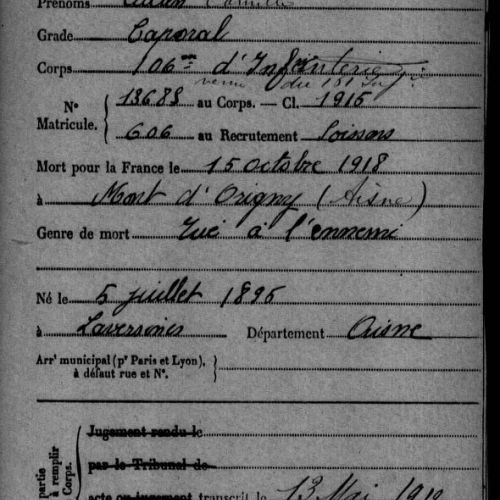 Prénoms
Grade Caporal
Corps 106me d'Infanterie
venu du 131 Inf
N° Matricule. { 13683 au Corps. — Cl. 1915
606 au Recrutement Soissons
Mort pour la France le 15 octobre 1918
à Mont d'Origny (Aisne)
Genre de mort Tué à l'ennemi
Né le 5 juillet 1896
à Laversines Département Aisne
Arrt municipal (pr Paris et Lyon), à défaut rue et N°. }
partie à remplir Corps.
Jugement rendu le
par le Tribunal de
acte ou jugement transcrit le 13 Mai 1919